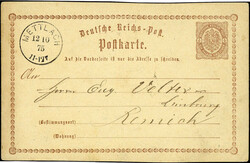 METTLACH
12 10
75
11-12V
Deutsche Reichs-Post.
Postkarte.
Auf die Vorderseite ist nur die Adresse zu schreiben.
Herrn Eug. Volter
Luxemburg
Remich
(Bestimmungsort)
(Wohnung)